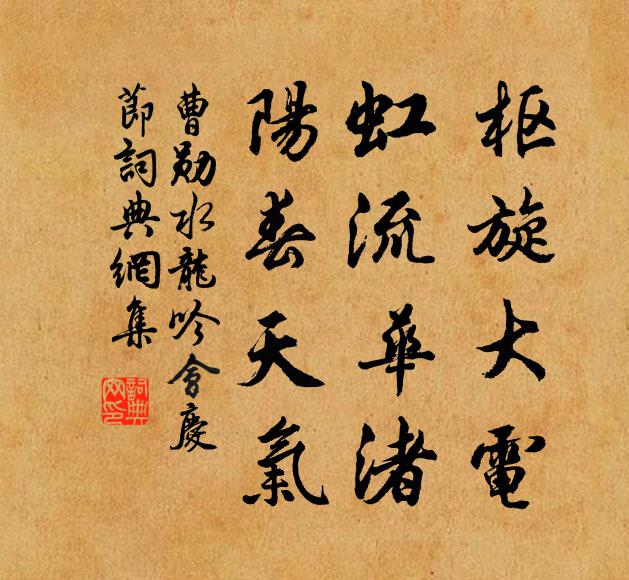 枢旋大電
虹流華渚
陽春天氣
曹勛水龍吟會慶
節詞典網集
詞典
网印